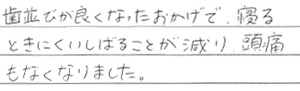 歯並びが良くなったおかげで、寝る
ときにくいしばることが減り、頭痛
もなくなりました。